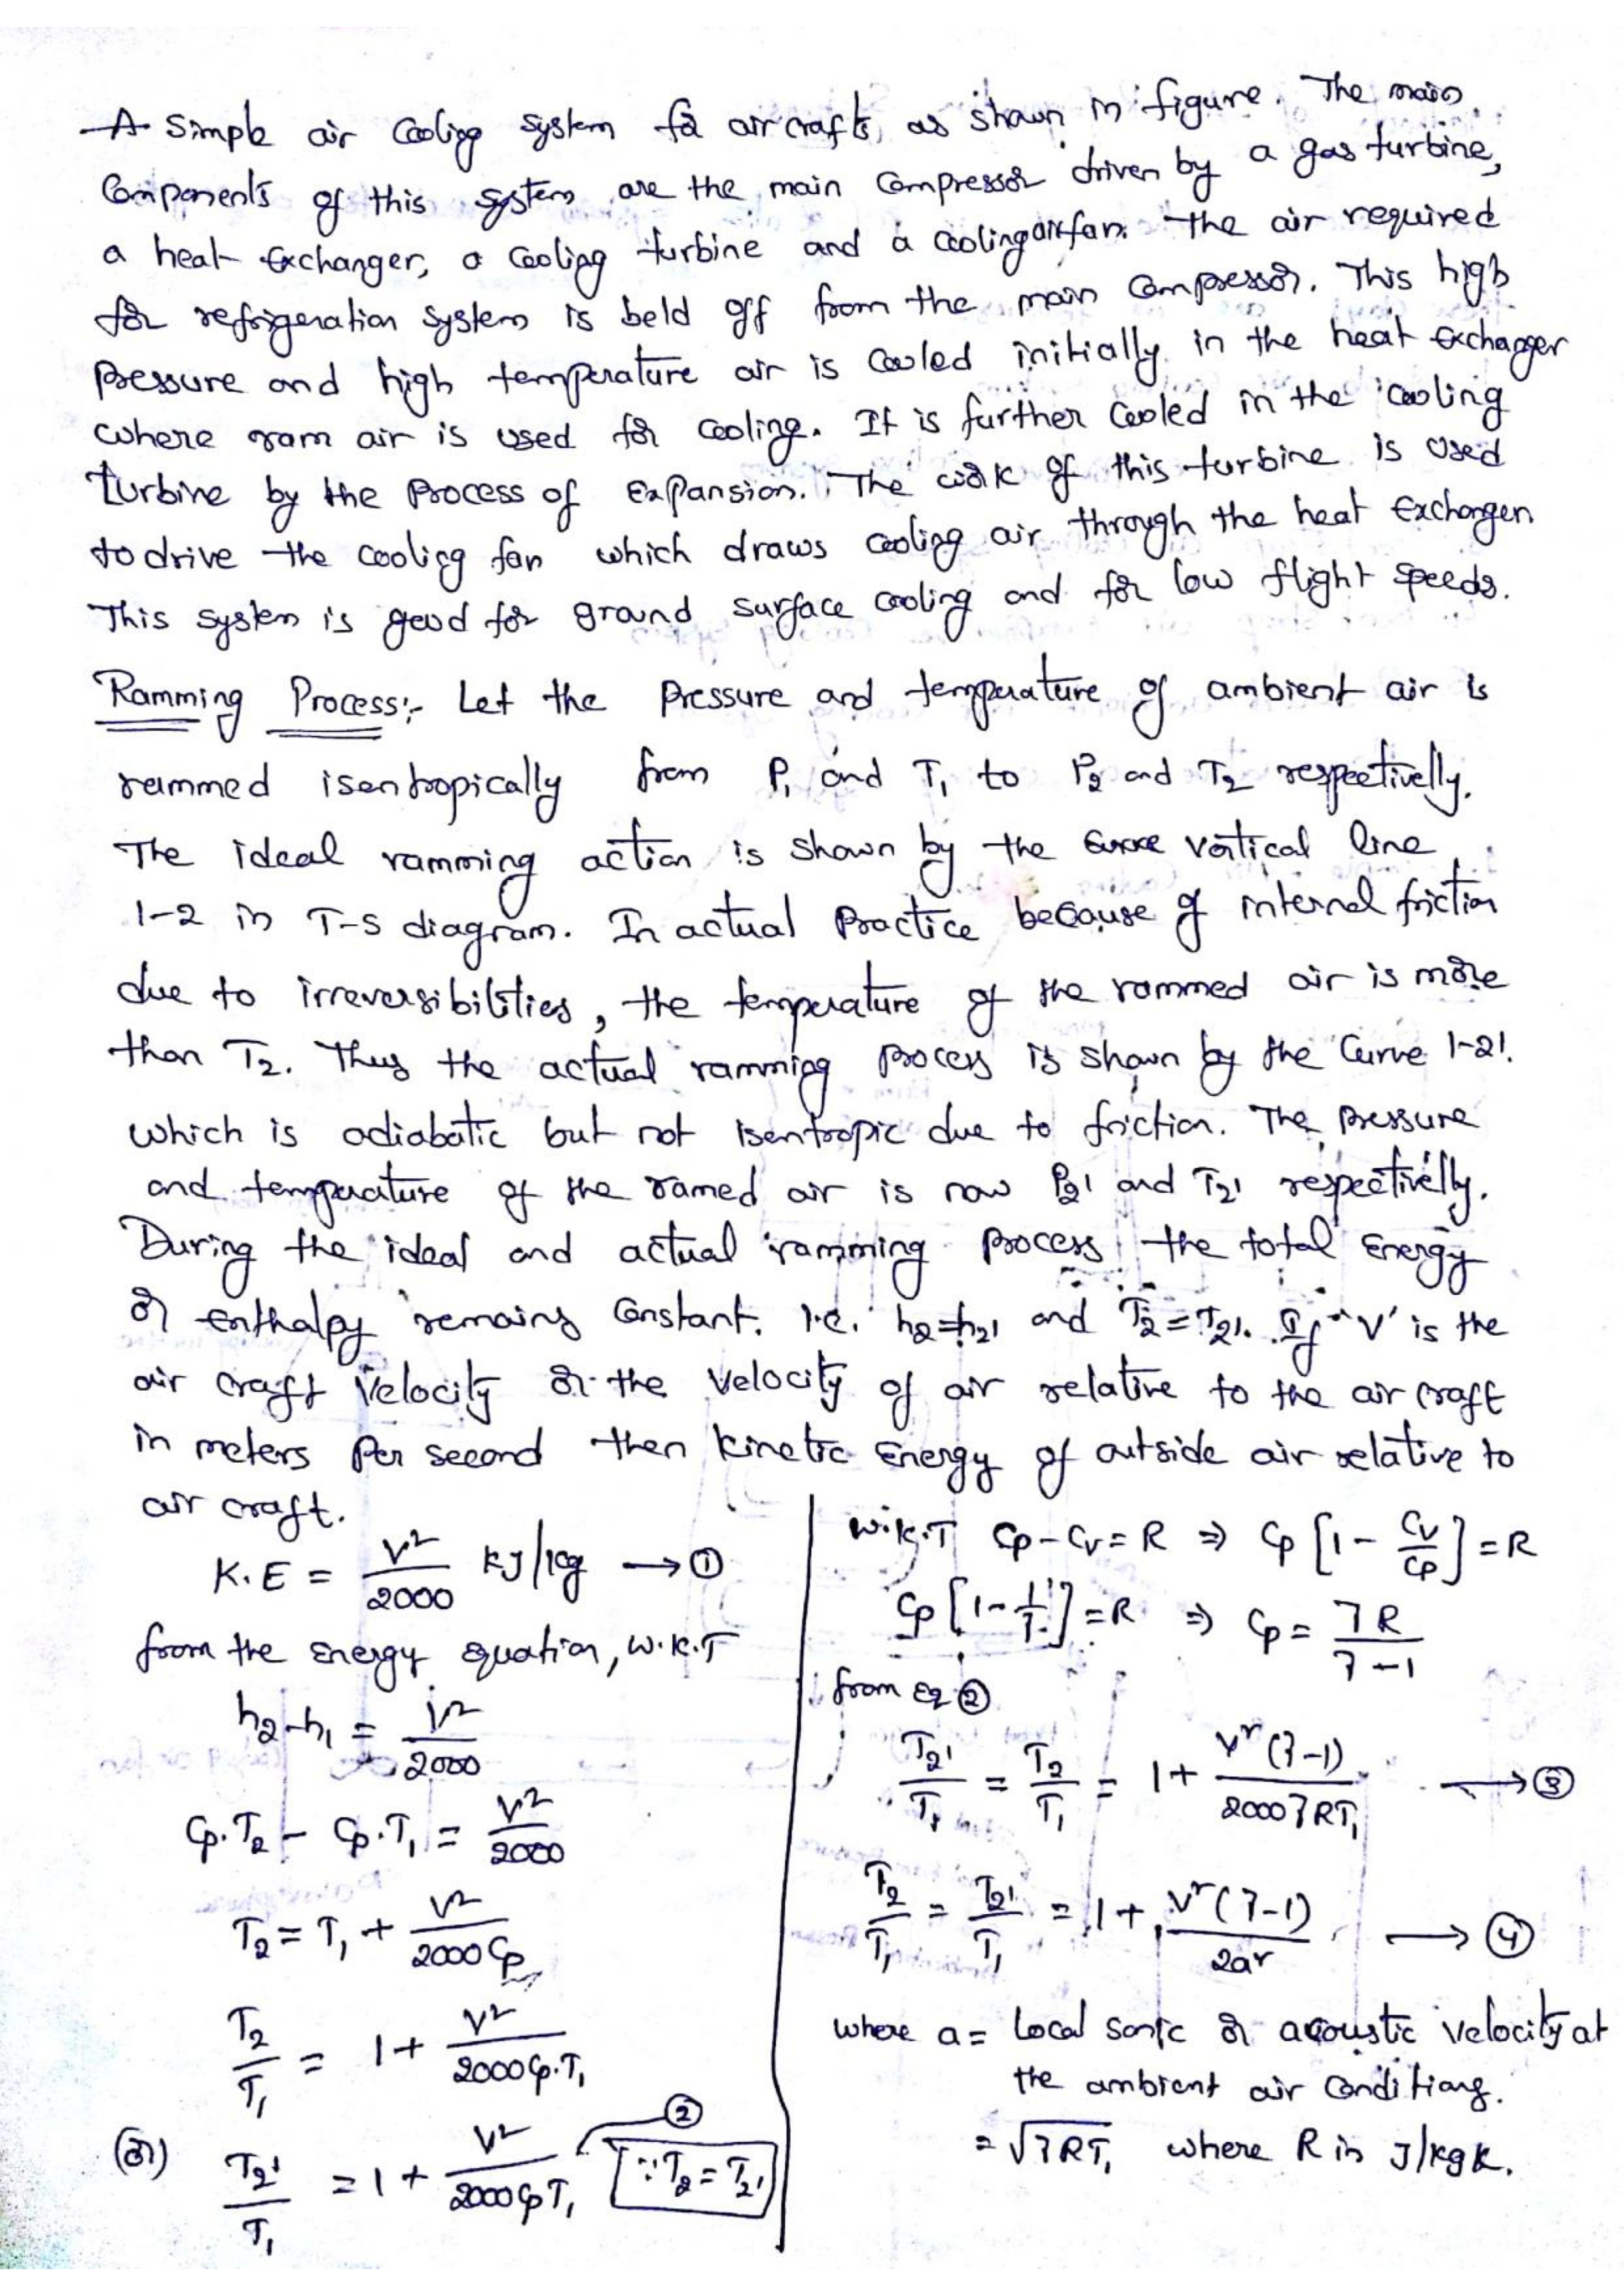 A Simple air Cooling system for aircrafts, as shown in figure. The main
Components of this system are the main compressor driven by a gas turbine,
a heat Exchanger, a Cooling turbine and a cooling air fan. The air required
for refrigeration system is beld off from the main compressor. This high
Pressure and high temperature air is cooled initially in the heat Exchanger
where ram air is used for cooling. It is further cooled in the cooling
turbine by the Process of Expansion. The work of this turbine is used
to drive the cooling fan which draws cooling air through the heat Exchanger.
This system is good for ground surface cooling and for low flight speeds.
Ramming Process:- Let the Pressure and temperature of ambient air is
rammed isentropically from P₁ and T₁ to P₂ and T₂ respectivelly.
The ideal ramming action is shown by the vertical line
1-2 in T-S diagram. In actual Practice because of internal friction
due to irreversibilities, the temperature of the rammed air is more
than T₂. Thus the actual ramming process is shown by the Curve 1-2'.
which is adiabatic but not isentropic due to friction. The pressure
and temperature of the ramed air is now P₂' and T₂' respectivelly.
During the ideal and actual ramming process the total Energy
or enthalpy remains Constant. i.e. h₂=h₂' and T₂=T₂'. If 'V' is the
air craft Velocity or the Velocity of air relative to the air craft
in meters Per second then kinetic Energy of outside air relative to
air craft.
K.E = V²/2000 kJ/kg → ①
from the Energy equation, w.k.T
h₂-h₁ = V²/2000
Cp.T₂ - Cp.T₁ = V²/2000
T₂ = T₁ + V²/2000Cp
T₂/T₁ = 1 + V²/2000Cp.T₁
(or) T₂'/T₁ = 1 + V²/2000CpT₁ ② [∵ T₂ = T₂']
w.k.T Cp-Cv = R ⇒ Cp [1 - Cv/Cp] = R
Cp [1 - 1/γ] = R ⇒ Cp = γR/γ-1
from Eq ②
T₂'/T₁ = T₂/T₁ = 1 + V²(γ-1)/2000γRT₁ → ③
T₂/T₁ = T₂'/T₁ = 1 + V²(γ-1)/2a² → ④
where a = Local sonic or acoustic velocity at
the ambient air Conditions.
= √γRT₁ where R in J/kgK.